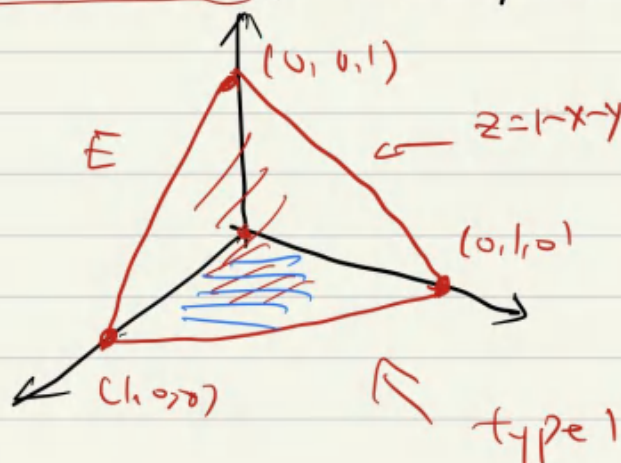 (0,0,1)
E
z=1-x-y
(0,1,0)
(1,0,0)
type 1